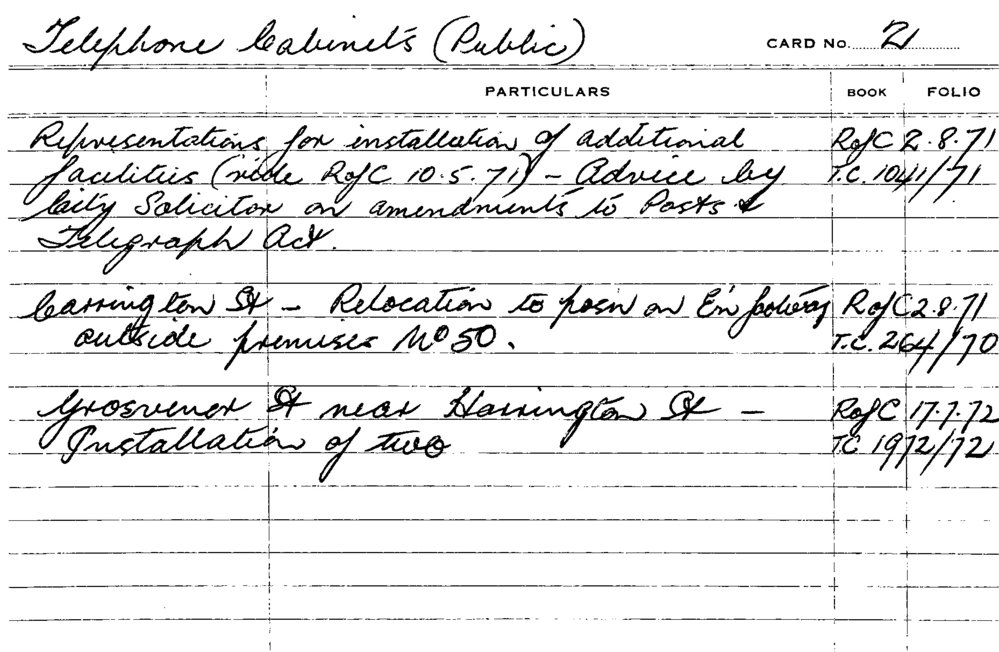 Telephone Cabinets (Public) CARD No. 21
PARTICULARS BOOK FOLIO
Representations for installation of additional RofC 2.8.71
facilities (vide RofC 10.5.71) – Advice by T.C. 1041/71
City Solicitor on amendments to Posts &
Telegraph Act.
Carrington St – Relocation to posn on E'n footway RofC 2.8.71
outside premises No 50. T.C. 264/70
Grosvenor St near Harrington St – RofC 17.7.72
Installation of two TC 1972/72